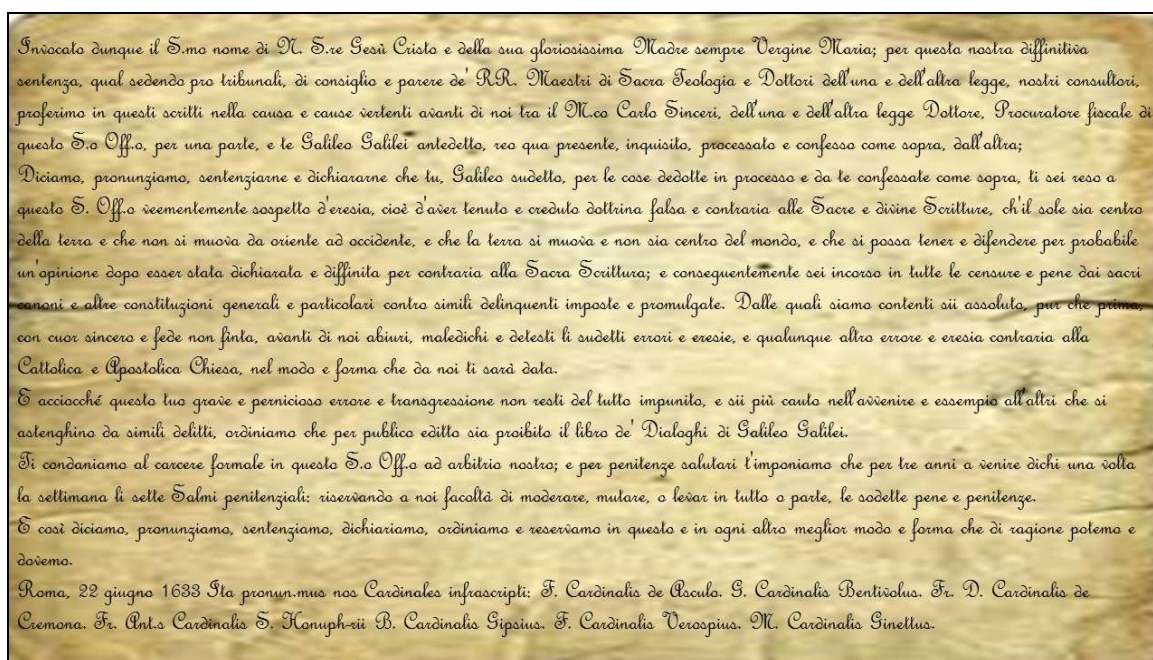 Invocato dunque il S.mo nome di N. S.re Gesù Cristo e della sua gloriosissima Madre sempre Vergine Maria; per questa nostra diffinitiva
sentenza, qual sedendo pro tribunali, di consiglio e parere de' RR. Maestri di Sacra Teologia e Dottori dell'una e dell'altra legge, nostri consultori,
proferimo in questi scritti nella causa e cause vertenti avanti di noi tra il M.co Carlo Sinceri, dell'una e dell'altra legge Dottore, Procuratore fiscale di
questo S.o Off.o, per una parte, e te Galileo Galilei antedetto, reo qua presente, inquisito, processato e confesso come sopra, dall'altra;
Diciamo, pronunziamo, sentenziarne e dichiararne che tu, Galileo sudetto, per le cose dedotte in processo e da te confessate come sopra, ti sei reso a
questo S. Off.o veementemente sospetto d'eresia, cioè d'aver tenuto e creduto dottrina falsa e contraria alle Sacre e divine Scritture, ch'il sole sia centro
della terra e che non si muova da oriente ad occidente, e che la terra si muova e non sia centro del mondo, e che si possa tener e difendere per probabile
un'opinione dopo esser stata dichiarata e diffinita per contraria alla Sacra Scrittura; e conseguentemente sei incorso in tutte le censure e pene dai sacri
canoni e altre constituzioni generali e particolari contro simili delinquenti imposte e promulgate. Dalle quali siamo contenti sii assoluto, pur che prima,
con cuor sincero e fede non finta, avanti di noi abiuri, maledichi e detesti li sudetti errori e eresie, e qualunque altro errore e eresia contraria alla
Cattolica e Apostolica Chiesa, nel modo e forma che da noi ti sarà data.
E acciocché questo tuo grave e pernicioso errore e transgressione non resti del tutto impunito, e sii più cauto nell'avvenire e essempio all'altri che si
astenghino da simili delitti, ordiniamo che per publico editto sia proibito il libro de' Dialoghi di Galileo Galilei.
Ti condaniamo al carcere formale in questo S.o Off.o ad arbitrio nostro; e per penitenze salutari t'imponiamo che per tre anni a venire dichi una volta
la settimana li sette Salmi penitenziali: riservando a noi facoltà di moderare, mutare, o levar in tutto o parte, le sodette pene e penitenze.
E così diciamo, pronunziamo, sentenziamo, dichiariamo, ordiniamo e reservamo in questo e in ogni altro meglior modo e forma che di ragione potemo e
dovemo.
Roma, 22 giugno 1633 Ita pronun.mus nos Cardinales infrascripti: F. Cardinalis de Asculo. G. Cardinalis Bentivolus. Fr. D. Cardinalis de
Cremona. Fr. Ant.s Cardinalis S. Honuph-rii B. Cardinalis Gipsius. F. Cardinalis Verospius. M. Cardinalis Ginettus.